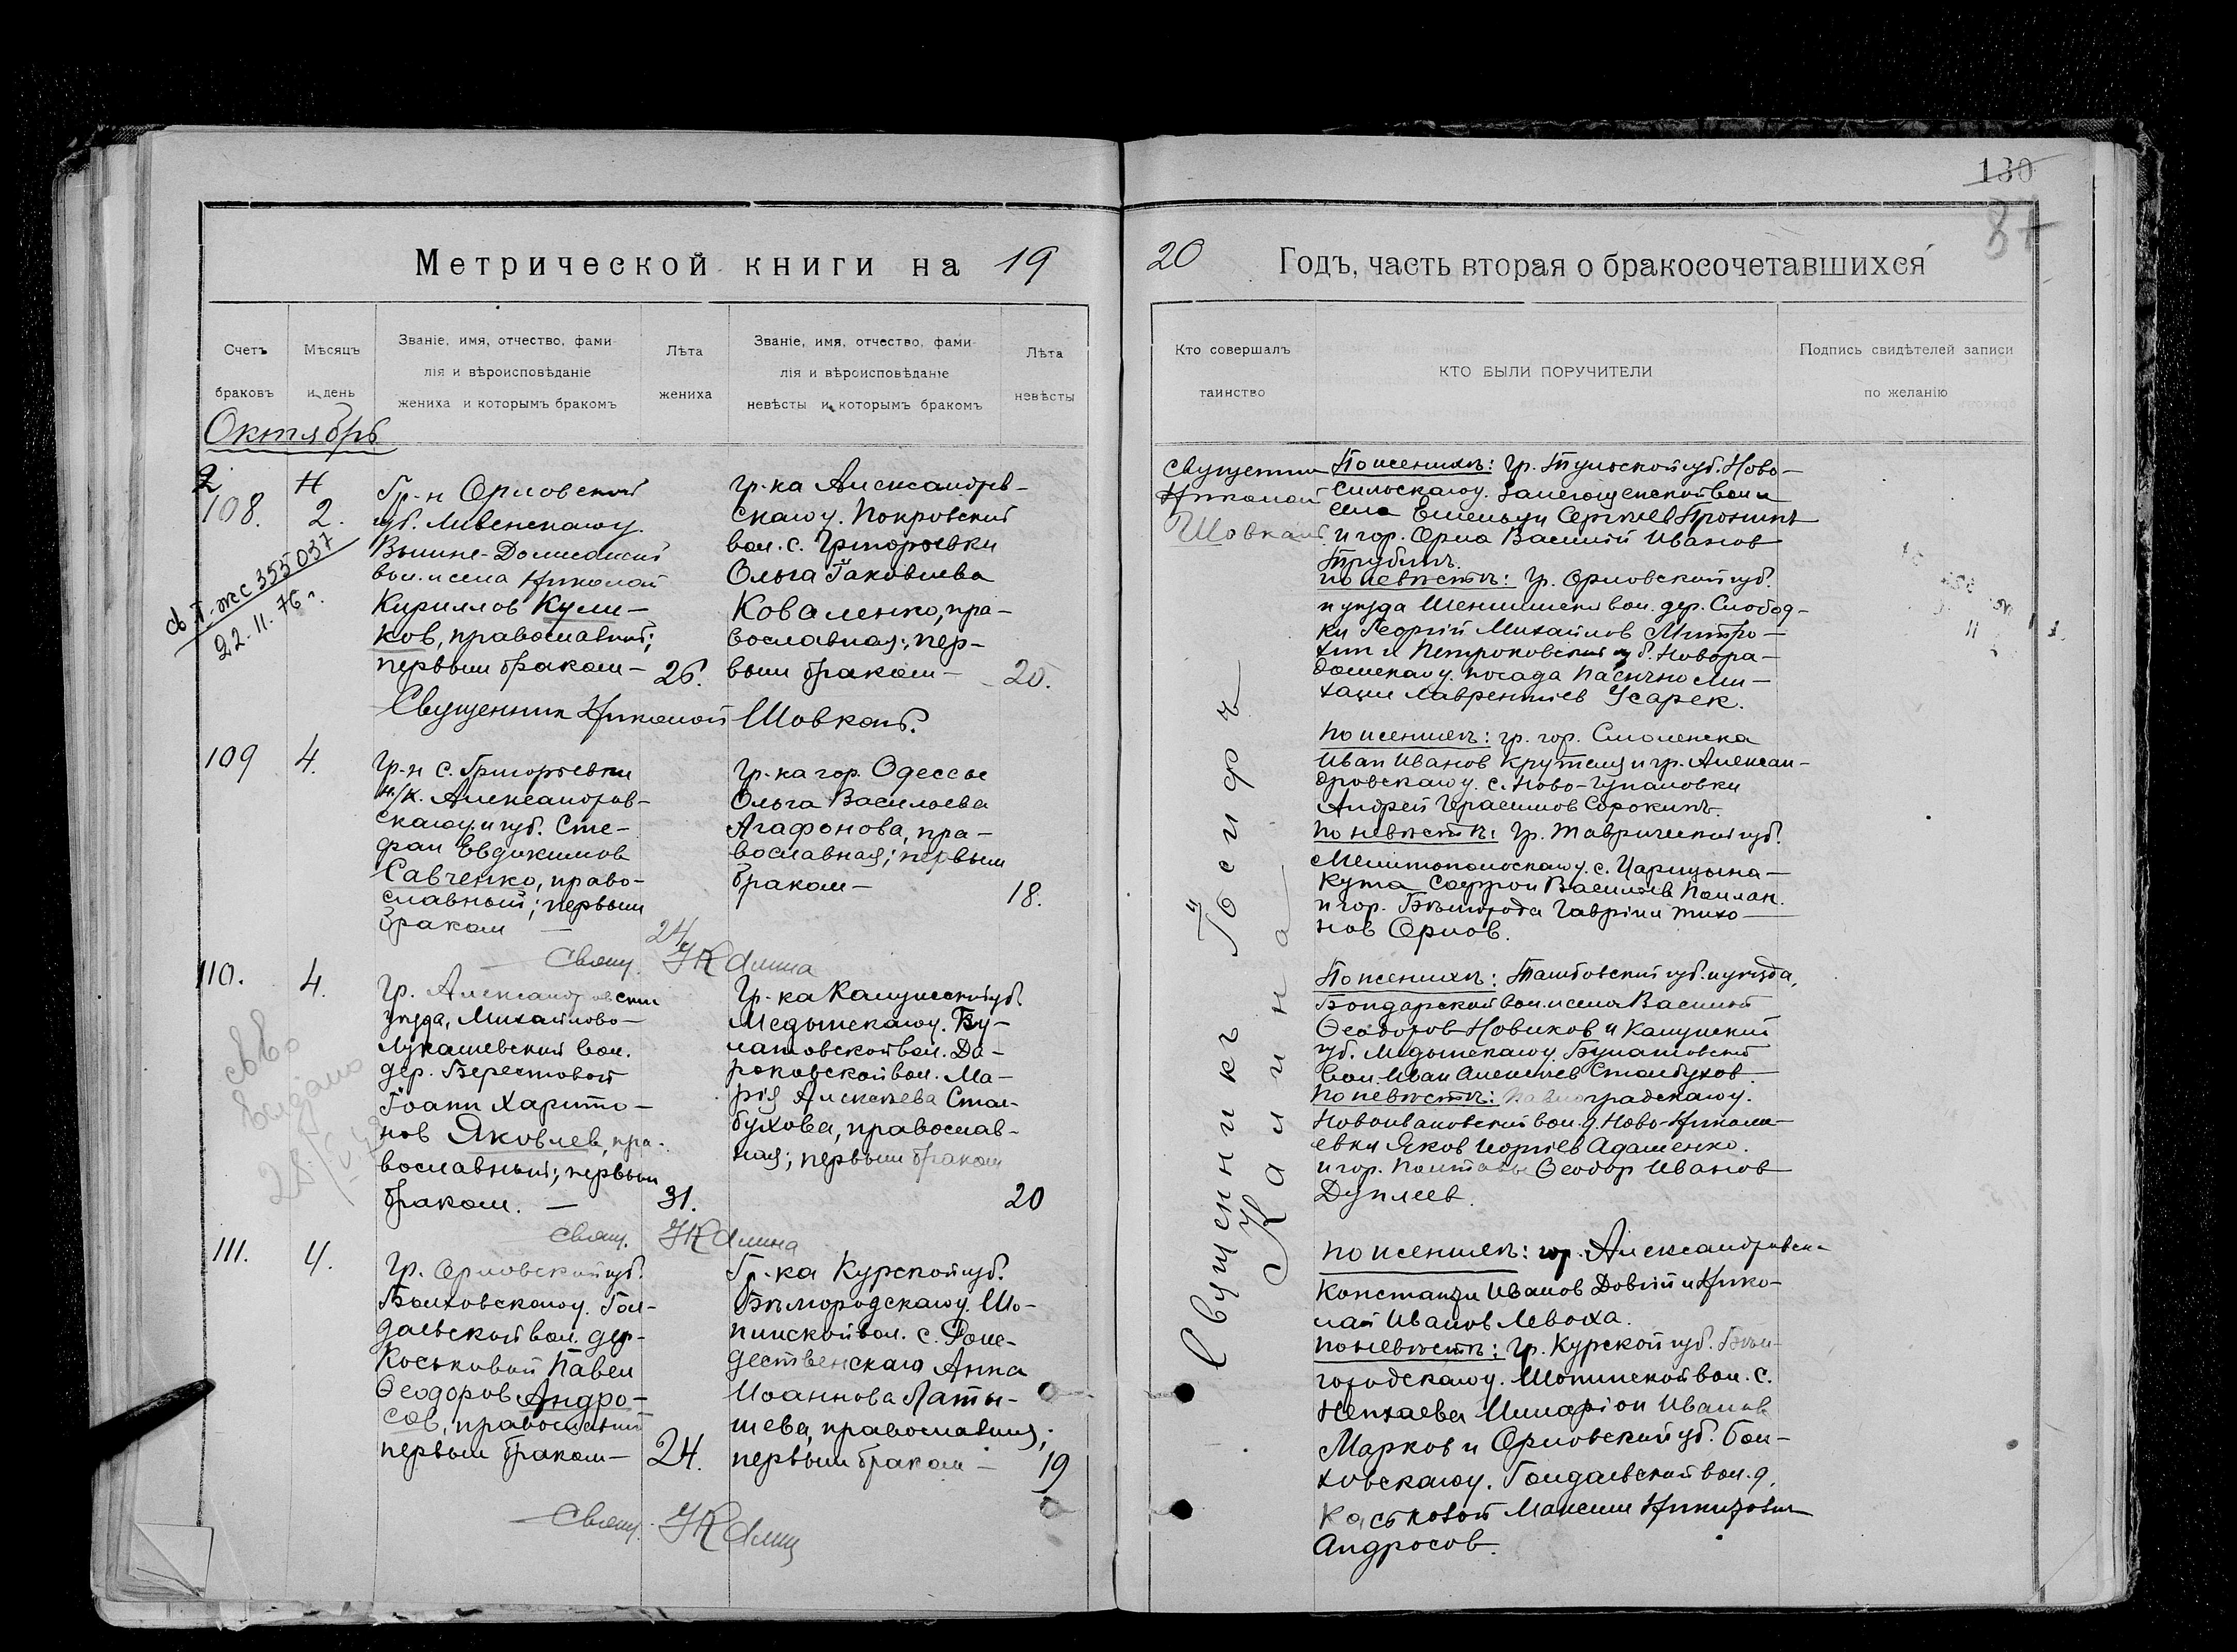 130
87
Метрической книги на 19
20 Годъ, часть вторая о бракосочетавшихся
Счетъ браковъ
Мѣсяцъ и день
Званіе, имя, отчество, фами-
лія и вѣроисповѣданіе
жениха и которымъ бракомъ
Лѣта жениха
Званіе, имя, отчество, фами-
лія и вѣроисповѣданіе
невѣсты и которымъ бракомъ
Лѣта невѣсты
Кто совершалъ таинство
КТО БЫЛИ ПОРУЧИТЕЛИ
Подпись свидѣтелей записи
по желанію
Октябрь
2 Н
108. 2.
св. I-жс 355037
22.11.76 г.
Гр-н Орловской
губ. Ливенскаго у.
Вышне-Должанской
вол. и села Николай
Кириллов Кули-
ков, православный;
первым браком- 26.
гр-ка Александров-
скаго у. Покровской
вол. с. Григорьевки
Ольга Іаковлева
Коваленко, пра-
вославная; пер-
вым браком- 20.
Священник Николай Шовкопъ.
109 4.
Гр-н с. Григорьевки
Александров-
скаго у. и губ. Сте-
фан Евдокимов
Савченко, право-
славный; первым
браком — 24
Гр-ка гор. Одессы
Ольга Васильева
Агафонова, пра-
вославная; первым
браком- 18.
Свящ. Калина
110. 4.
Гр. Александровскаго
уѣзда, Михайлово-
Лукашевской вол.
дер. Берестовой
Іоанн Харито-
нов Яковлев, пра-
вославный; первым
браком. — 31.
Гр-ка Калужской губ.
Медынскаго у. Бу-
латовской вол.
вол. Ма-
рія Алексѣева Стол-
бухова, православ-
ная; первым браком
20
св-во
выдано
28/V
Свящ. Калина
111. 4.
Гр. Орловской губ.
Болховскаго у. Гол-
даевской вол. дер-
Коськовой Павел
Ѳеодоров Андро-
сов, православный
первым браком- 24.
Гр-ка Курской губ.
Бѣлгородскаго у. Шо-
пинской вол. с. Рож-
дественскаго Анна
Иоаннова Латы-
шева, православная;
первым браком- 19
Свящ. Калина
Священник
Николай
Шовкопъ
Священникъ Іосифъ
Калина
По женихѣ: Гр. Тульской губ. Ново-
сильскаго у. вол. и
села Емельян Сергѣев Пронинъ
и гор. Орла Василій Иванов
Трубинъ.
по невѣстѣ: Гр. Орловской губ.
и уѣзда вол. дер. Слобод-
ки Георгій Михайлов Митро-
хин и Петроковской губ. Новора-
домскаго у. посада Паенчно Ми-
хаил Лаврентьев Усарек.
По женихѣ: гр. гор. Смоленска
Иван Иванов и гр. Алексан-
дровскаго у. с. Ново-Гупаловки
Андрей Герасимов Сорокинъ.
По невѣстѣ: Гр. Таврической губ.
Мелитопольскаго у. с. Царицына-
Кута Софрон Васильев
и гор. Бѣлгорода Гавріил Тихо-
нов Орлов.
По женихѣ: Тамбовской губ. и уѣзда,
Бондарской вол. и села Василій
Ѳеодоров Новиков и Калужской
губ. Медынскаго у. Булатовской
вол. Иван Алексѣев Столбухов.
По невѣстѣ: Павлоградскаго у.
Новоивановской вол. д. Ново-Никола-
евки Яков Георгіев Адаменко.
и гор. Полтавы Ѳеодор Иванов
Дуплеев.
По женихѣ: гр. Александровска
Константин Иванов Довгій и Нико-
лай Иванов Левоха.
По невѣстѣ: Гр. Курской губ. Бѣл-
городскаго у. Шопинской вол. с.
Нехаева Илларіон Иванов
Марков и Орловской губ. Бол-
ховскаго у. Голдаевской вол. д.
Каськовой Максим Никитович
Андросов.